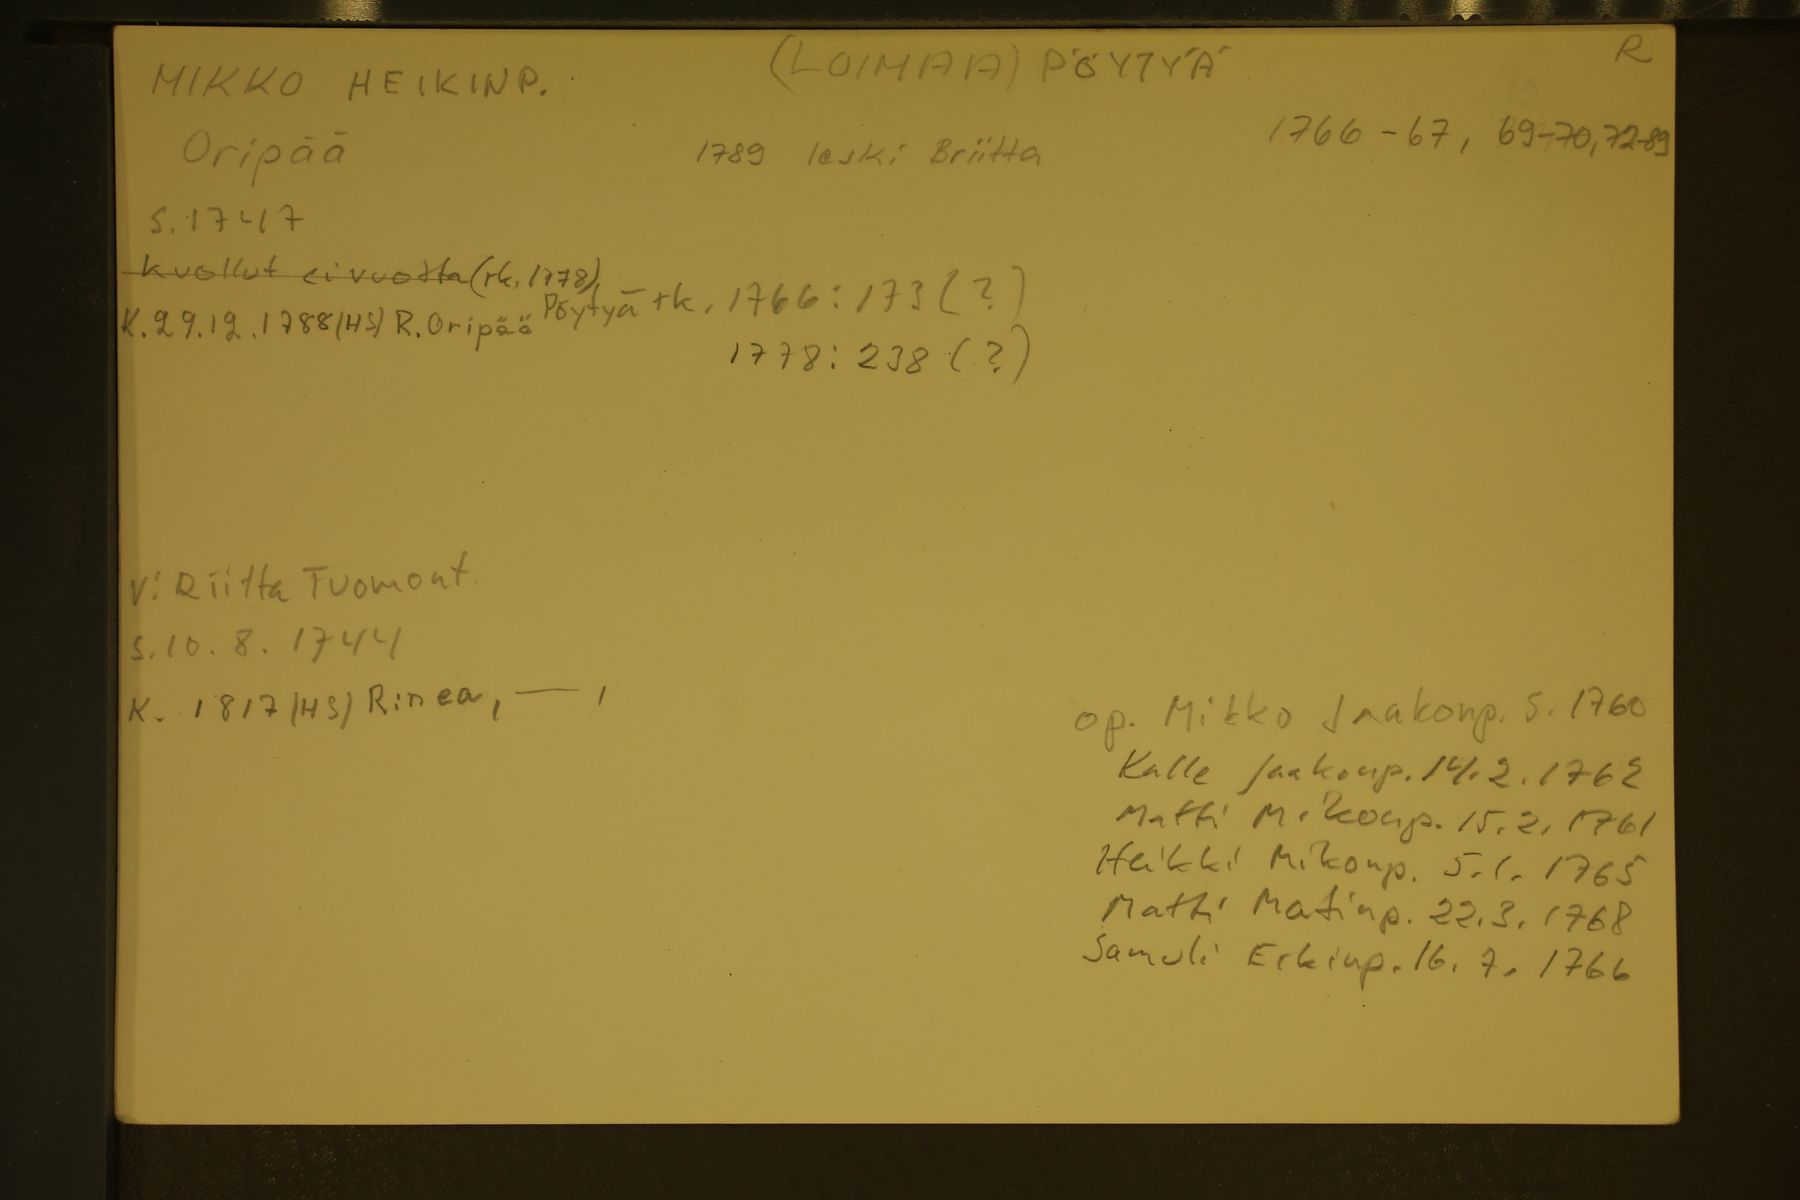 MIKKO HEIKINP. (LOIMAA) PÖYTYÄ R
Oripää 1789 leski Briitta 1766-67, 69-70, 72-89
S. 1747
Kuollut ei vuotta (rk. 1778),
K. 29.12.1788 (HS) R. Oripää Pöytyä rk. 1766: 173 (?)
1778: 238 (?)
V: Riitta Tuomont.
S. 10. 8. 1744
K. 1817 (HS) Rinea, — ,
op. Mikko Jaakonp. S. 1760
Kalle Jaakonp. 14. 2. 1762
Matti Mikonp. 15. 2. 1761
Heikki Mikonp. 5. 1. 1765
Matti Matinp. 22. 3. 1768
Samuli Erkinp. 16. 7. 1766